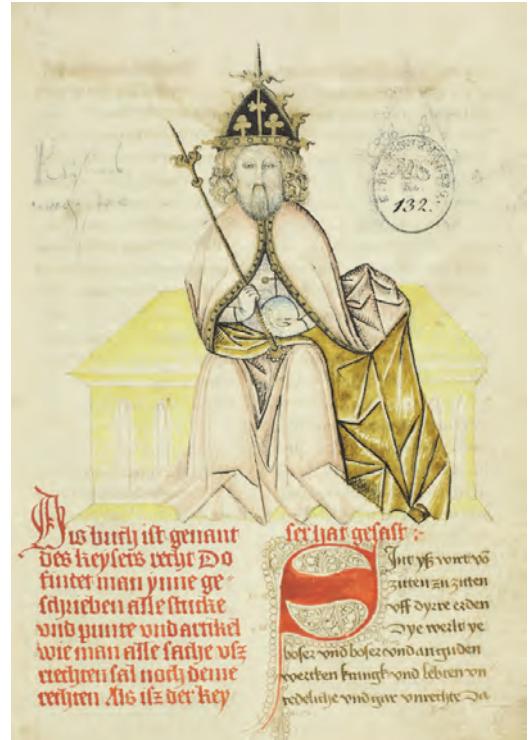 132.
Dis buch ist genant
des keysers recht Do
findet man ynne ge-
schrieben alle stucke
vnd punte vnd artikel
wie man alle sache vsz
riechten sal noch deme
rechten Als isz der key
ser hat gesast :-
Sint ysz wort vō
zitten zu zitten
vff dyrre erden
Dye werlt ye
boser vnd boser vnd an guden
wercken krangk vnd lebten vn
redeliche vnd gar vnrechte Da